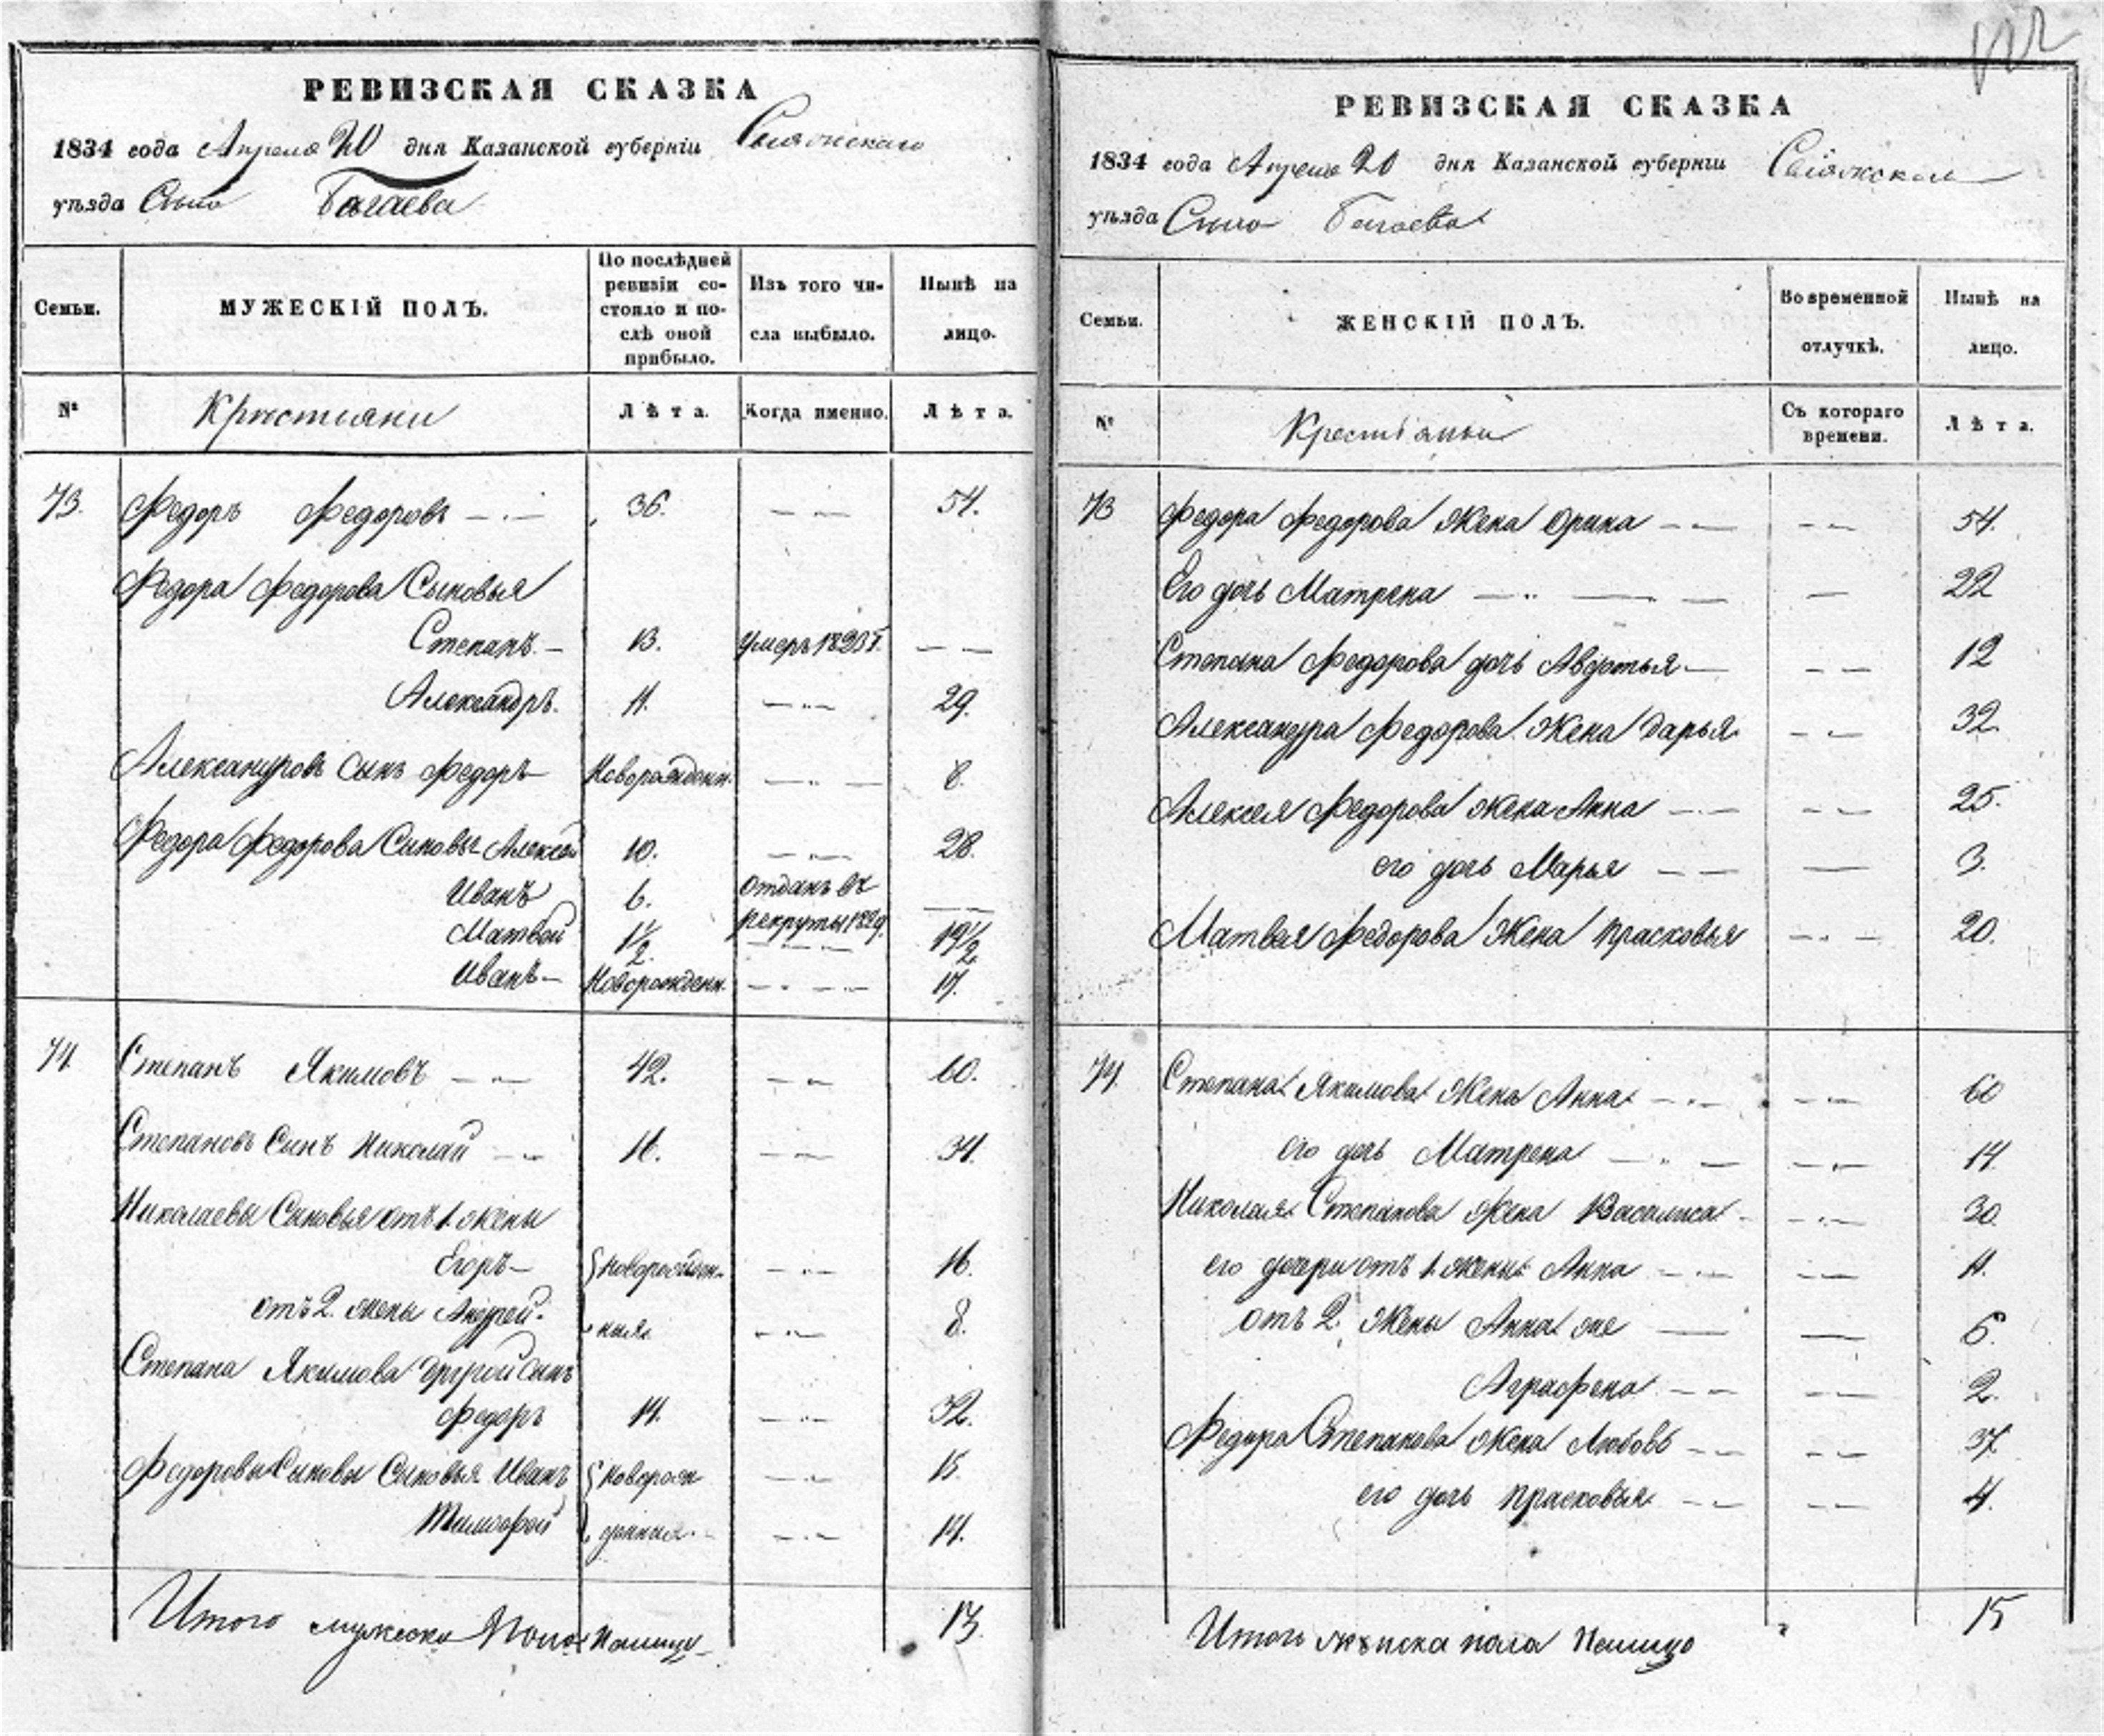 РЕВИЗСКАЯ СКАЗКА
1834 года Апреля 20 дня Казанской губерніи Свіяжскаго
уѣзда Село Багаева
Семьи.
МУЖЕСКІЙ ПОЛЪ.
По послѣдней ревизіи состояло и послѣ оной прибыло.
Изъ того числа выбыло.
Нынѣ на лицо.
№
Крестьяни
Лѣта.
Когда именно.
Лѣта.
73. Федоръ Федоровъ — 36. — 54.
Федора Федорова Сыновья
Степанъ — 13. умеръ 1823 г. —
Александръ. 11. — 29.
Александровъ сынъ Федоръ Новорожденн. — 8.
Федора Федорова Сыновья Алексей 10. — 28.
Иванъ 6. отданъ въ рекруты 1829. —
Матвей 1½. — 19½
Иванъ — Новорожденн. — 17.
74. Степанъ Якимовъ — 42. — 60.
Степановъ Сынъ Николай — 16. — 34.
Николаевы Сыновья отъ 1. жены
Егоръ — Новорожден- — 16.
отъ 2. жены Андрей. ныя. — 8.
Степана Якимова другой сынъ
Федоръ 14. — 32.
Федоровы Сыновья Иванъ Новорож — 15.
Тимофей денныя. — 14.
Итого мужеска пола налицо 13.
РЕВИЗСКАЯ СКАЗКА
1834 года Апреля 20 дня Казанской губерніи Свіяжскаго
уѣзда Село Багаева
Семьи.
ЖЕНСКІЙ ПОЛЪ.
Во временной отлучкѣ.
Нынѣ на лицо.
№
Крестьянки
Съ котораго времени.
Лѣта.
73 Федора Федорова жена Орина — — 54.
Его дочь Матрена — — 22
Степана Федорова дочь Авдотья — — 12
Александра Федорова жена Дарья — 32.
Алексея Федорова жена Анна — — 25.
его дочь Марья — — 3.
Матвея Федорова жена Прасковья — 20.
74. Степана Якимова жена Анна — — 60
его дочь Матрена — — 14.
Николая Степанова жена Василиса — — 30.
его дочери отъ 1. жены Анна — — 11.
отъ 2. жены Анна же — — 6.
Аграфена — — 2.
Федора Степанова жена Любовь — — 37.
его дочь Прасковья — — 4.
Итого женска пола налицо 15